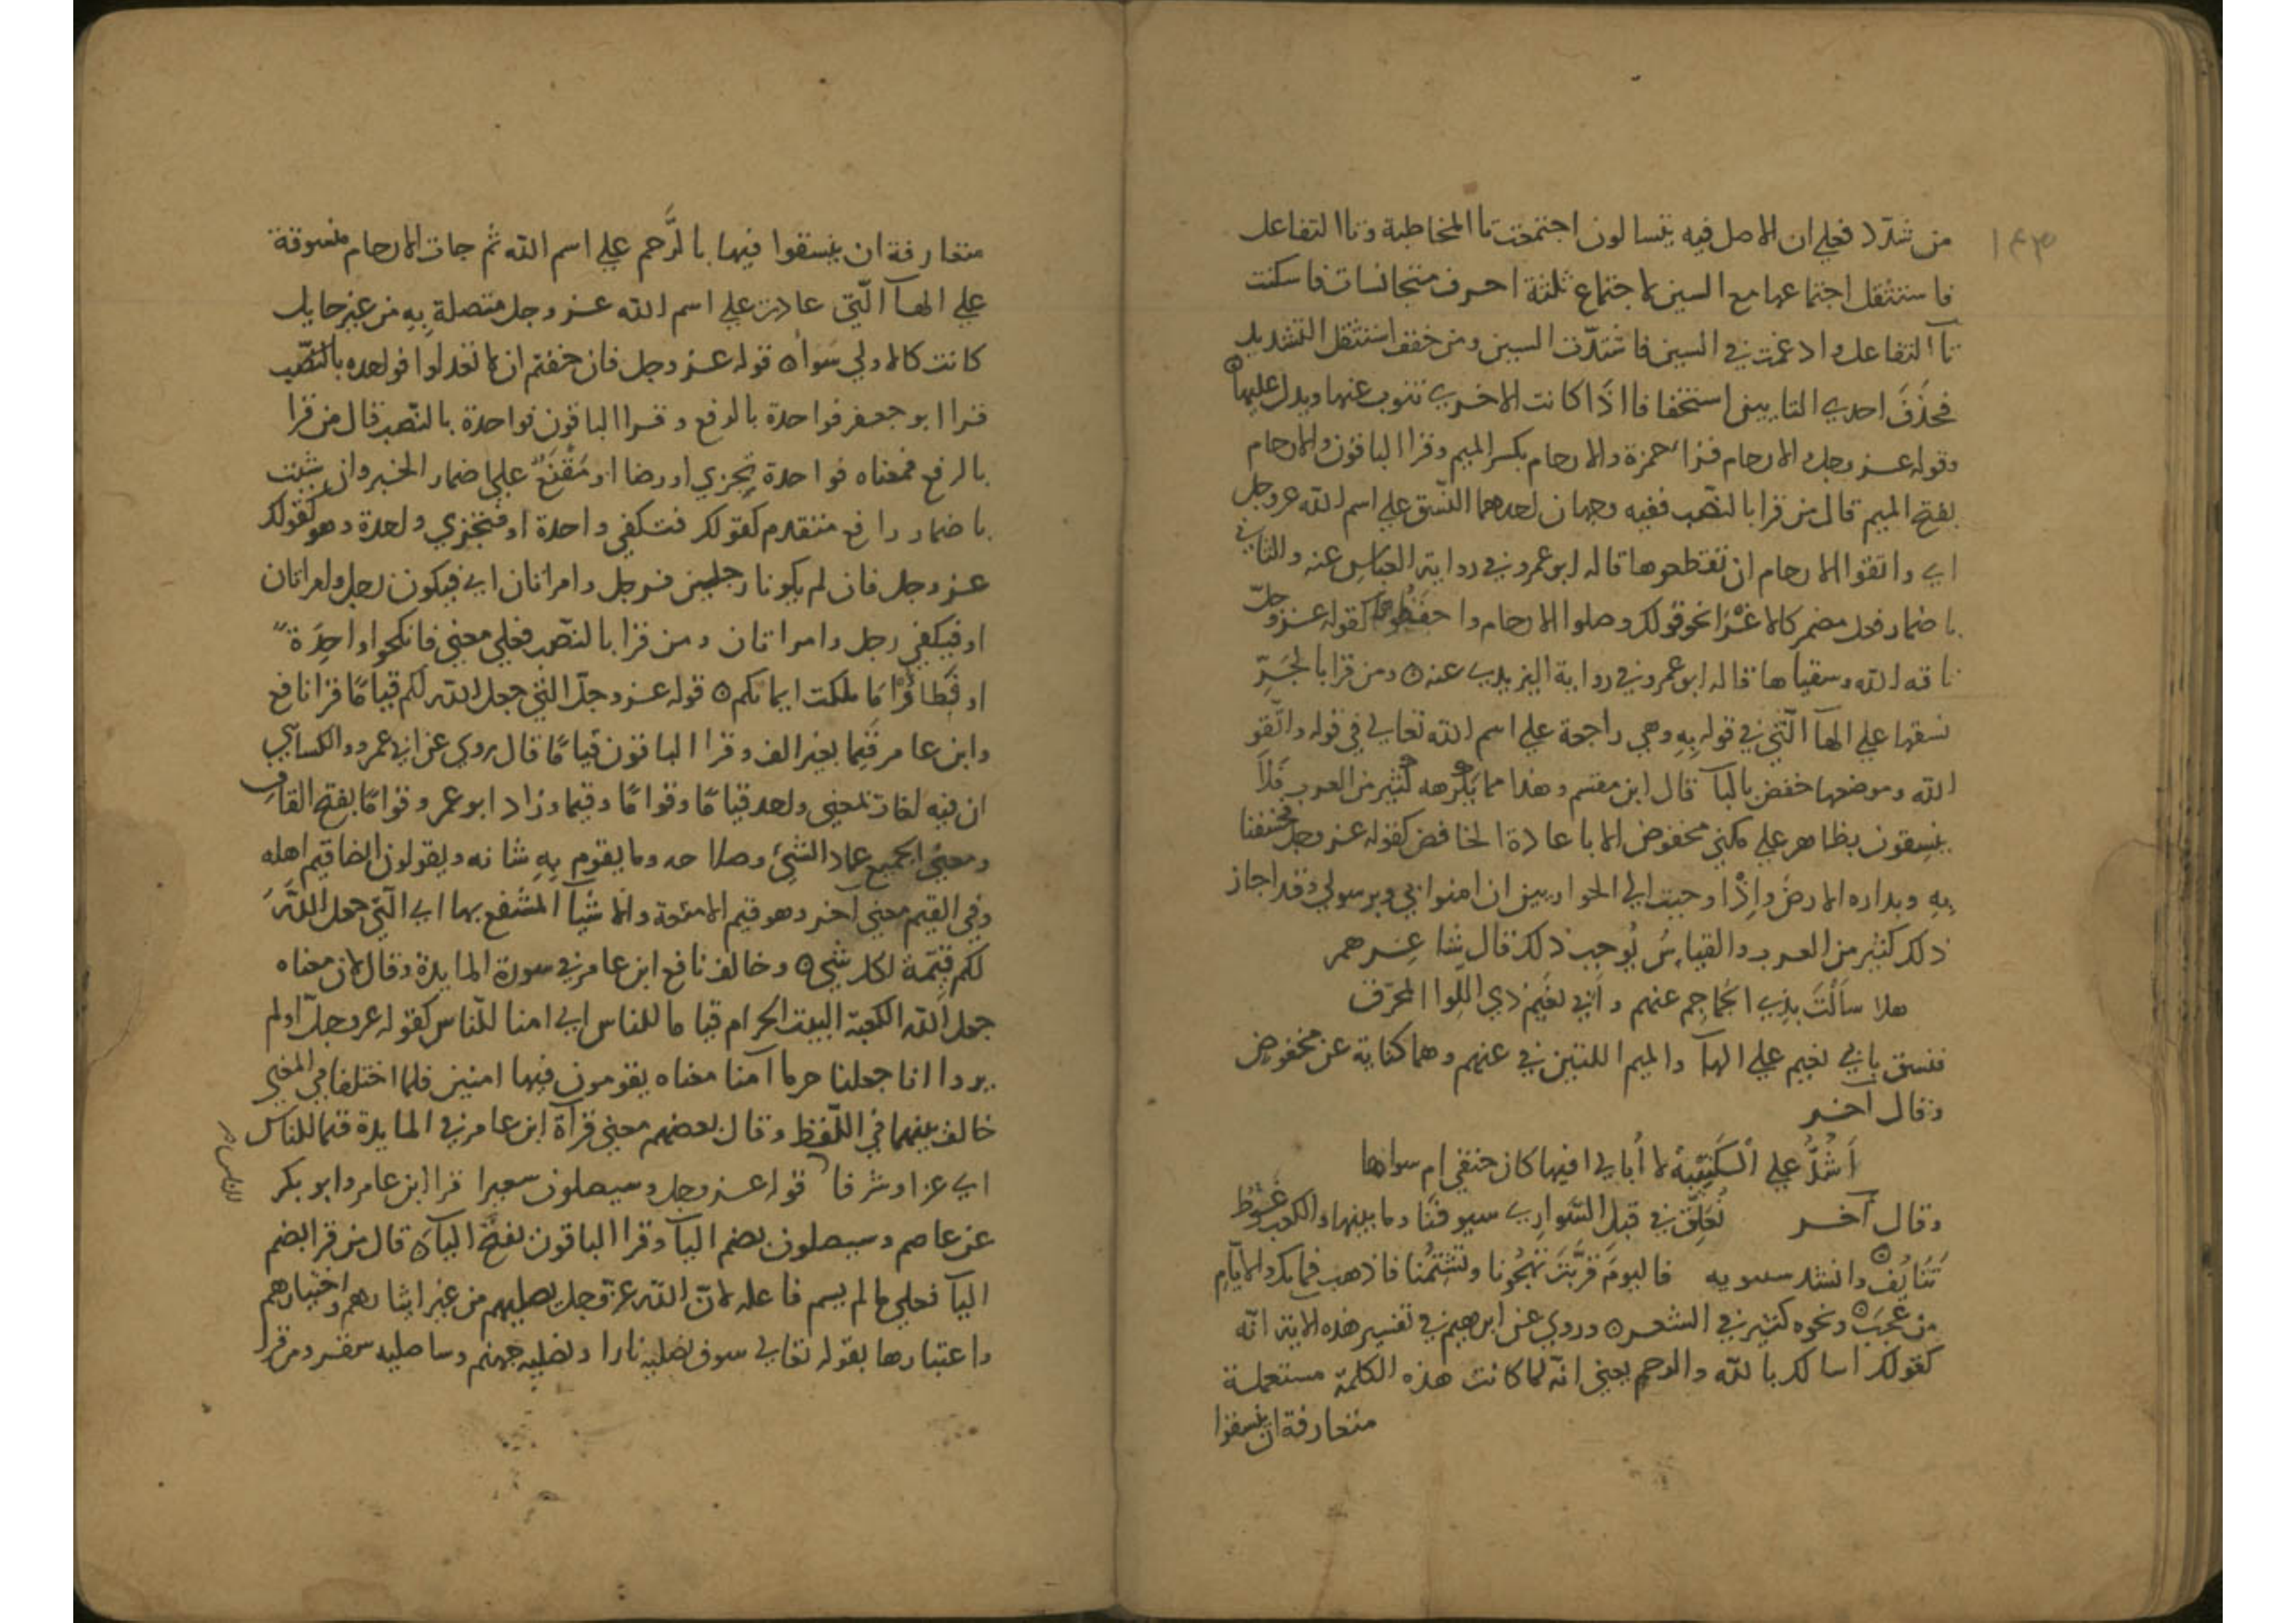 ١٤٣
من شدّد فعلي ان الاصل فيه يتسالون اجتمعت تا المخاطبة وتا التفاعل
فاستثقل اجتماعها مع السين لاجتماع ثلثة احرف متجانسات فاسكنت
تآ التفاعل وادغمت في السين فاشتدّت السين ومن خفف استثقل التشديد
فحذف احدي التايين استخفافا اذا كانت الاخري تنوب عنها ويدل عليها ۝
وقوله عز وجل والارحام قرا حمزة والارحام بكسر الميم وقرا الباقون والارحام
بفتح الميم قال من قرا بالنصب ففيه وجهان احدهما النّسق علي اسم الله عز وجل
اي واتقوا الارحام ان تقطعوها قاله ابو عمرو في رواية العباس عنه والثاني
باضمار فعل مضمر كالاغرا نحو قولك وصلوا الارحام واحفظوها كقوله عز وجلّ
ناقه الله وسقياها قاله ابو عمرو في رواية اليزيدي عنه ۝ ومن قرا بالجَرِّ
نسقها علي الهآ الّتي في قوله بِهِ وهي راجعة علي اسم الله تعالي في قوله واتّقو
الله وموضعها خفض بالبآ قال ابن مقسم وهذا مما يكرهه كثير من العرب فلا
ينسقون بظاهر علي مكني مخفوض الا باعادة الخافض كقوله عز وجل فخسفنا
بِهِ وبداره الارض واِذْ اوحيت الي الحواريين ان امنوا بي وبرسولي وقد اجاز
ذلك كثير من العرب والقياسُ يُوجب ذلك قال شاعرهم
هلا سَاَلْتَ بذي الجماجم عنهم وابي نعيم ذي اللوا المحرّق
فنسق بابي نعيم علي الهآ والميم اللتين في عنهم وهما كناية عن مخفوض
وقال آخر
اَشُدُّ علي الكَتِيْبَة لا أُبالي افيها كان حتفي ام سواها
وقال آخر نُعَلّق في قبل السّواري سيوفنا وما بينها والكعب غوط
تنايف ۝ وانشد سيبويه فاليومَ قرّبت تهجونا وتشتمنا فاذهب فما بك والايّام
من عجب ۝ ونحوه كثير في الشعر ۝ وروي عن ابرهيم في تفسير هذه الاية انّه
كقولك اسالك بالله والرحم يعني انّه لما كانت هذه الكلمة مستعملة
متعارفة ان ينسقوا
متعارفة ان ينسقوا فيها بالرَّحم علي اسم الله ثم جات الارحام منسوقة
علي الهآ الّتي عادت علي اسم الله عز وجل متصلة بِهِ من غير حايل
كانت كالاولي سوآ ۝ قوله عز وجل فان خفتم ان لا تعدلوا فواحده بالنصّب
قرا ابو جعفر فواحدة بالرفع وقرا الباقون فواحدة بالنصب قال من قرا
بالرفع فمعناه فواحدة تجزي او رضا او مَقْنَعٌ علي اضمار الخبر وان شئت
باضمار رافع متقدم كقولك فتكفي واحدة او فتجزي واحدة وهو كقولك
عز وجل فان لم يكونا رجلين فرجل وامراتان اي فيكون رجل وامراتان
او فيكفي رجل وامراتان ومن قرا بالنصّب فعلي معني فانكحوا واحِدَةً
او فَطَاوْا مَا ملكت ايمانكم ۝ قوله عز وجلّ الّتي جعل الله لكم قيامًا قرا نافع
وابن عامر قِيَما بغير الف وقرا الباقون قيامًا قال روي عن ابي عمرو والكسآيي
ان فيه لغات بمعني واحد قيامًا وقوامًا وقيما وزاد ابو عمرو قوامًا بفتح القاف
ومعني الجميع عماد الشيْ وصلاحه وما يقوم بِهِ شانه ويقولون ايضا قيم اهله
وفي القيم معني آخر وهو قيم الامتعة والاشيآ المنتفع بها اي الّتي جعل اللّٰه
لكم قيّمة لكل شي ۝ وخالف نافع ابن عامر في سورة المايدة وقال لان معناه
جعل اللّه الكعبة البيت الحرام قياما للناس اي امنا للّناس كقوله عز وجلّ اولم
يروا انا جعلنا حرما آمنا معناه يقومون فيها امنين فلما اختلفا في المعني
خالف بينهما في اللّفظ وقال بعضهم معني قرآة ابن عامر في المايدة قيما للناس
اي عزا وشرفا قوله عز وجل وسيصلون سعيرا قرا ابن عامر وابو بكر
عن عاصم وسيصلون بضم اليآ وقرا الباقون بفتح اليآ ۝ قال من قرا بضم
اليآ فعلي ما لم يسم فاعله لانّ اللّه عز وجل يصليهم من غير ايثارهم واختيارهم
واعتبارها بقوله تعالي سوف نصليه نارا ونصليه جهنم وساصليه سقر ومن قرا